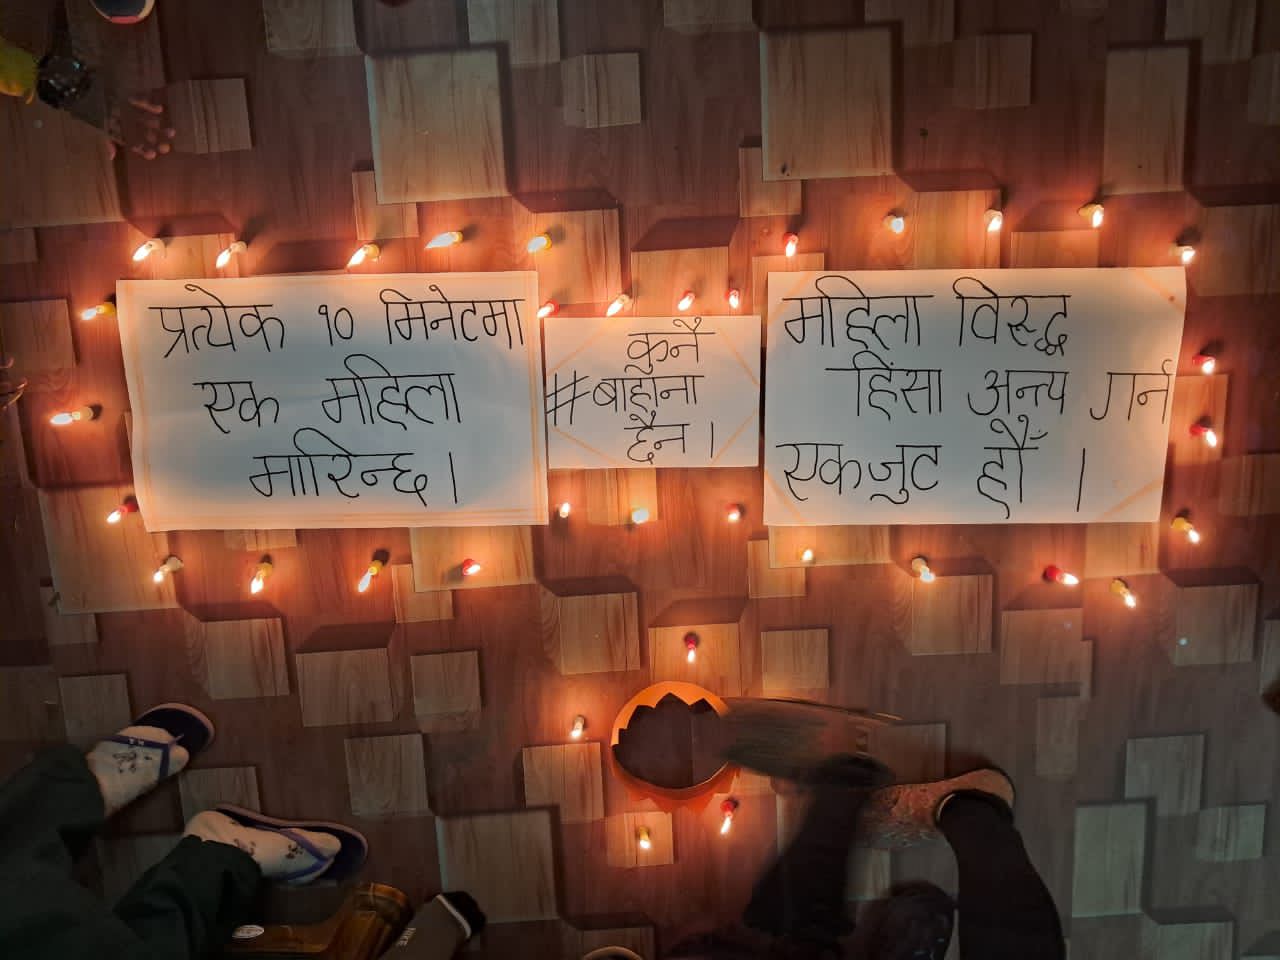 प्रत्येक १० मिनेटमा
एक महिला
मारिन्छ।
कुनै
#बाहाना
छैन ।
महिला विरुद्ध
हिंसा अन्त्य गर्न
एकजुट हौँ ।